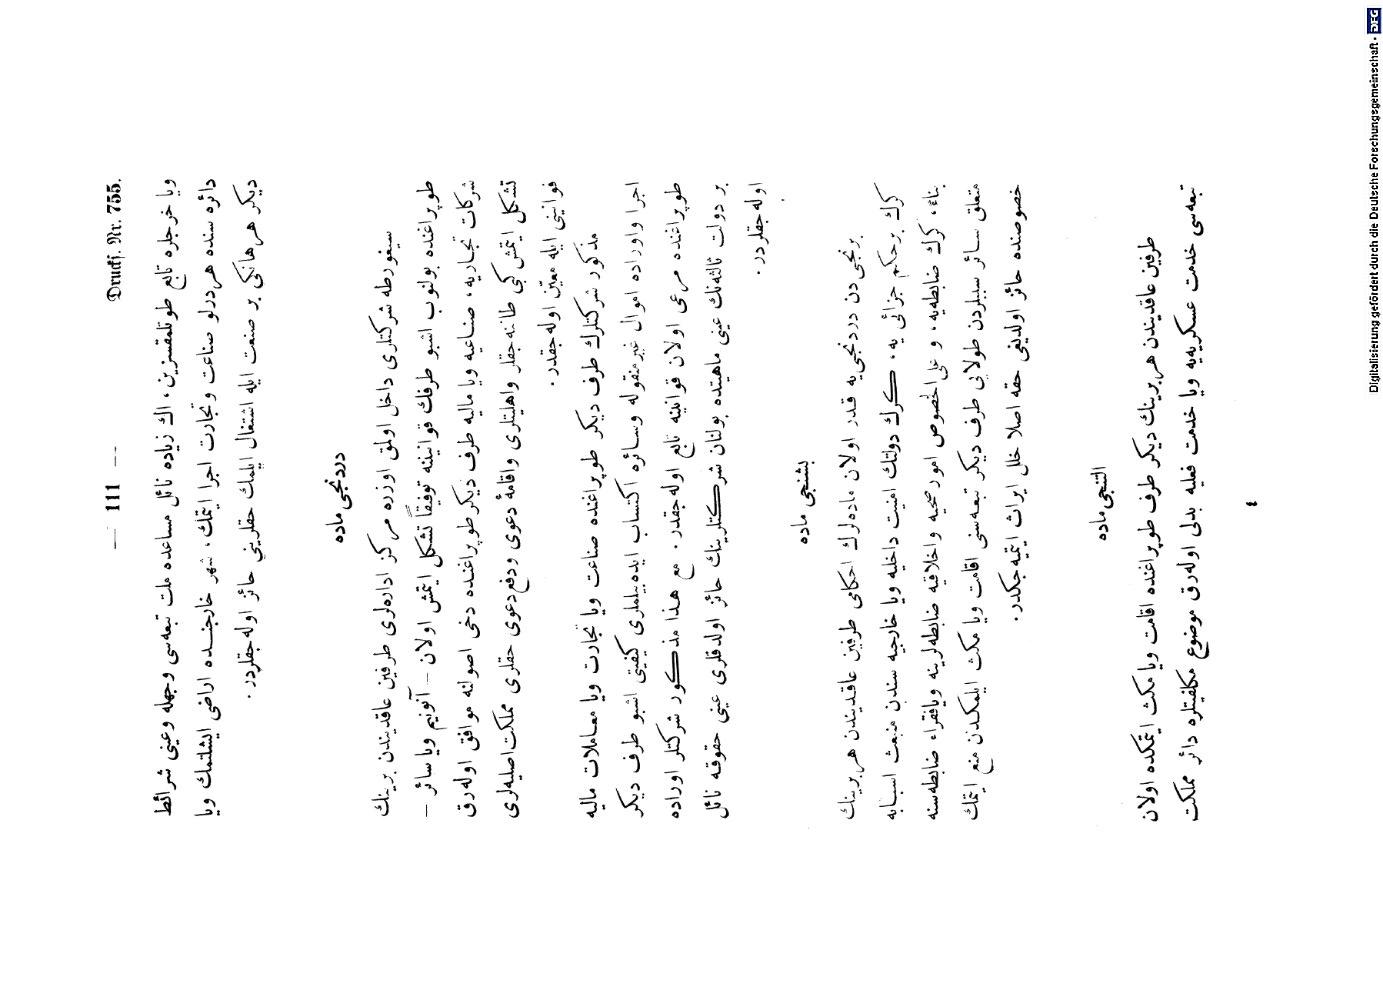 Drucks. Nr. 755.
— 111 —
ويا خرجلره تابع طوتلمقسزين، اك زياده نائل مساعده ملت تبعه‌سى وجهله وعينى شرائط
دائره سنده هر درلو صناعت وتجارت اجرا ايتمك، شهر خارجنده اراضى ايشلتمك ويا
ديكر هر هانكى بر صنعت ايله اشتغال ايلمك حقلريني حائز اوله جقلردر.
دردنجى ماده
سيغورطه شركتلرى داخل اولمق اوزره مركز اداره‌لرى طرفين عاقديندن برينك
طوپراغنده بولنوب اشبو طرفك قوانيننه توفيقاً تشكل ايتمش اولان – آنونيم ويا سائر –
شركات تجاريه، صناعيه ويا ماليه طرف ديكر طوپراغنده دخى اصولنه موافق اوله‌رق
تشكل ايتمش كبى طاننه جقلر واهليتلرى واقامهٔ دعوى ودفع دعوى حقلرى مملكت اصليه‌لرى
قوانينى ايله معين اوله جقدر.
مذكور شركتلرك طرف ديكر طوپراغنده صناعت ويا تجارت ويا معاملات ماليه
اجرا واوراده اموال غير منقوله وسائره اكتساب ايده بيلملرى كيفيتى اشبو طرف ديكر
طوپراغنده مرعى اولان قوانينه تابع اوله جقدر. مع هذا مذكور شركتلر اوراده
بر دولت ثالثه‌نك عينى ماهيتده بولنان شركتلرينك حائز اولدقلرى عينى حقوقه نائل
اوله جقلردر.
بشنجى ماده
برنجى دن دردنجى يه قدر اولان ماده لرك احكامى طرفين عاقديندن هر برينك
كرك بر حكم جزائى يه، كرك دولتك امنيت داخليه ويا خارجيه سندن منبعث اسبابه
بناءً، كرك ضابطه‌يه، و على الخصوص امور صحيه واخلاقيه ضابطه لرينه ويا فقراء ضابطه سنه
متعلق سائر سببلردن طولايى طرف ديكر تبعه‌سنى اقامت ويا مكث ايلمكدن منع ايتمك
خصوصنده حائز اولديغى حقه اصلا خلل ايراث ايتميه جكدر.
التنجى ماده
طرفين عاقديندن هر برينك ديكر طرف طوپراغنده اقامت ويا مكث ايتمكده اولان
تبعه‌سى خدمت عسكريه‌يه ويا خدمت فعليه بدلى اوله‌رق موضوع مكلفيتلره دائر مملكت
٤
Digitalisierung gefördert durch die Deutsche Forschungsgemeinschaft - DFG